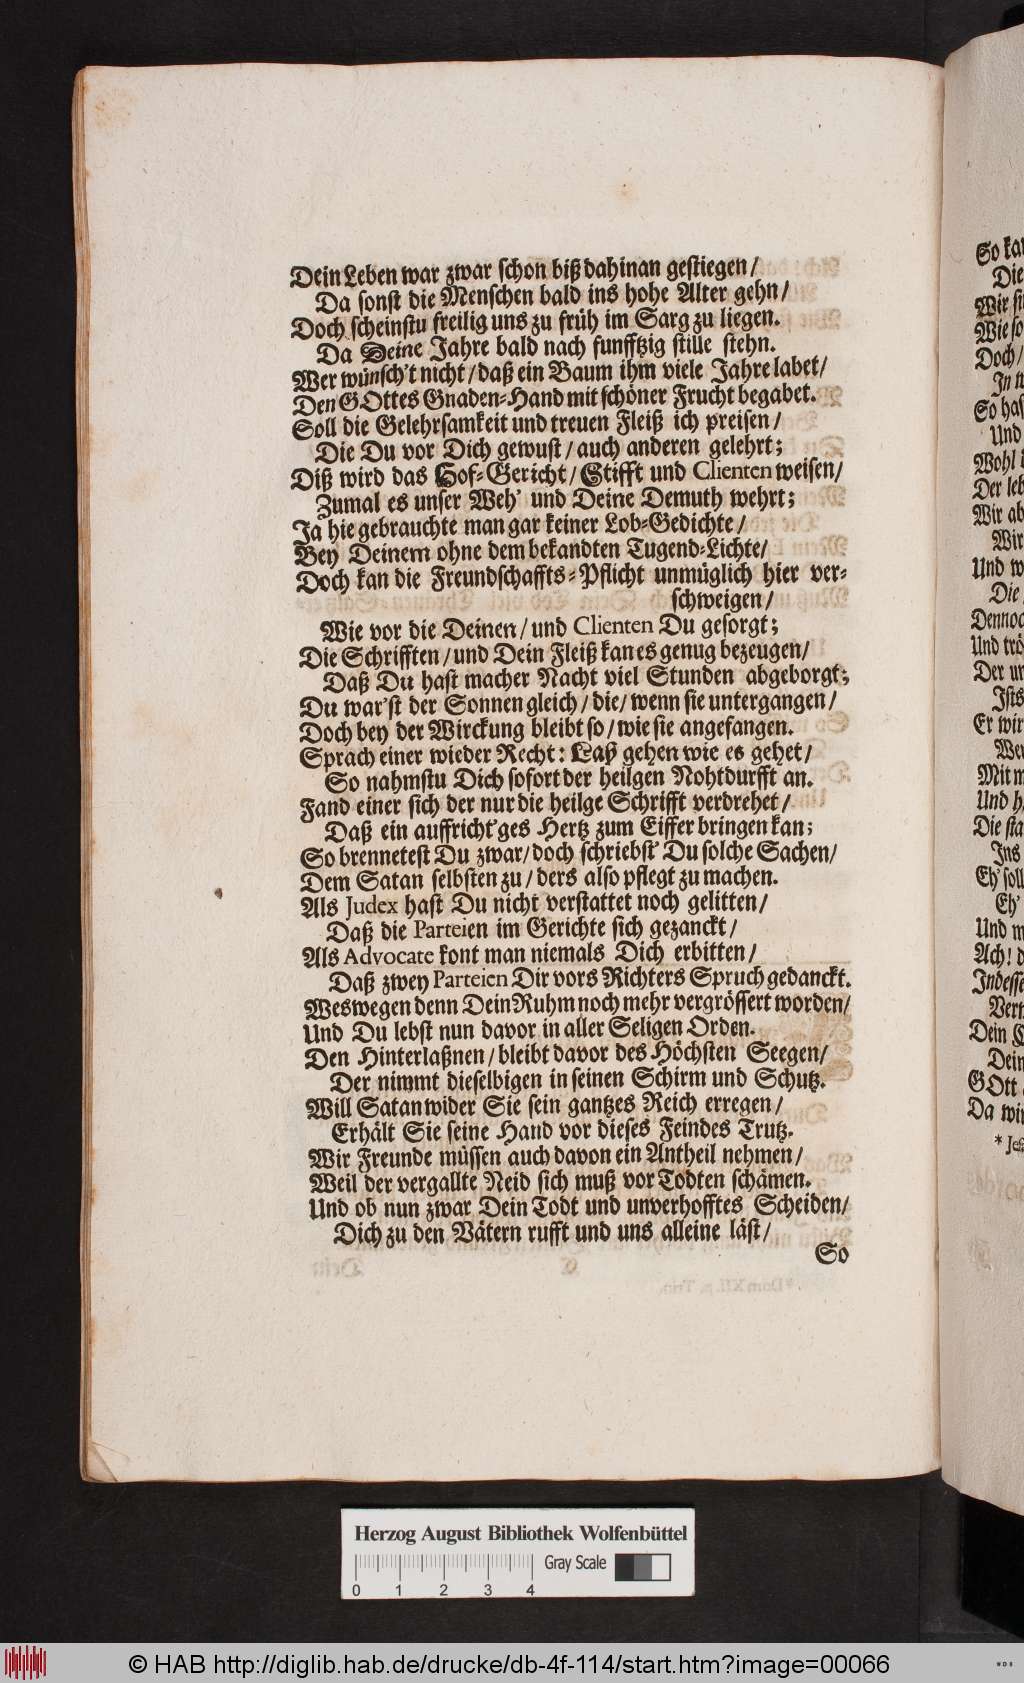 Dein Leben war zwar schon biß dahinan gestiegen/
Da sonst die Menschen bald ins hohe Alter gehn/
Doch scheinstu freilig uns zu früh im Sarg zu liegen.
Da Deine Jahre bald nach funfftzig stille stehn.
Wer wünsch't nicht/ daß ein Baum ihm viele Jahre labet/
Den GOttes Gnaden-Hand mit schöner Frucht begabet.
Soll die Gelehrsamkeit und treuen Fleiß ich preisen/
Die Du vor Dich gewust/ auch anderen gelehrt;
Diß wird das Hof-Gericht/ Stifft und Clienten weisen/
Zumal es unser Weh' und Deine Demuth wehrt;
Ja hie gebrauchte man gar keiner Lob-Gedichte/
Bey Deinem ohne dem bekandten Tugend-Lichte/
Doch kan die Freundschaffts-Pflicht unmüglich hier ver-
schweigen/
Wie vor die Deinen/ und Clienten Du gesorgt;
Die Schrifften/ und Dein Fleiß kan es genug bezeugen/
Daß Du hast macher Nacht viel Stunden abgeborgt;
Du war'st der Sonnen gleich/ die/ wenn sie untergangen/
Doch bey der Wirckung bleibt so/ wie sie angefangen.
Sprach einer wieder Recht: Laß gehen wie es gehet/
So nahmstu Dich sofort der heilgen Nohtdurfft an.
Fand einer sich der nur die heilge Schrifft verdrehet/
Daß ein auffricht'ges Hertz zum Eiffer bringen kan;
So brennetest Du zwar/ doch schriebst' Du solche Sachen/
Dem Satan selbsten zu/ ders also pflegt zu machen.
Als Judex hast Du nicht verstattet noch gelitten/
Daß die Parteien im Gerichte sich gezanckt/
Als Advocate kont man niemals Dich erbitten/
Daß zwey Parteien Dir vors Richters Spruch gedanckt.
Weswegen denn Dein Ruhm noch mehr vergrössert worden/
Und Du lebst nun davor in aller Seligen Orden.
Den Hinterlaßnen/ bleibt davor des Höchsten Seegen/
Der nimmt dieselbigen in seinen Schirm und Schutz.
Will Satan wider Sie sein gantzes Reich erregen/
Erhält Sie seine Hand vor dieses Feindes Trutz.
Wir Freunde müssen auch davon ein Antheil nehmen/
Weil der vergallte Neid sich muß vor Todten schämen.
Und ob nun zwar Dein Todt und unverhofftes Scheiden/
Dich zu den Vätern rufft und uns alleine läst/
So
So
Die
Wir
Wie so
Doch/
In
So has
Und
Wohl
Der leb
Wir ab
Wir
Und w
Die
Dennoc
Und trö
Der un
Ists
Er wir
Wer
Mit m
Und h
Die sta
Ins
Eh' soll
Eh'
Und m
Ach! d
Indesse
Dein
Dein
GOtt
Da wir
Herzog August Bibliothek Wolfenbüttel
Gray Scale
0 1 2 3 4
© HAB http://diglib.hab.de/drucke/db-4f-114/start.htm?image=00066